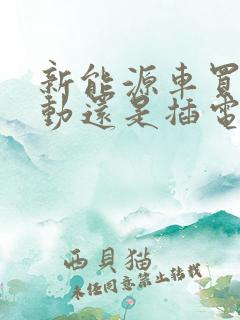 新能源車買
動還是插電
西貝猫
未经同意禁止转载